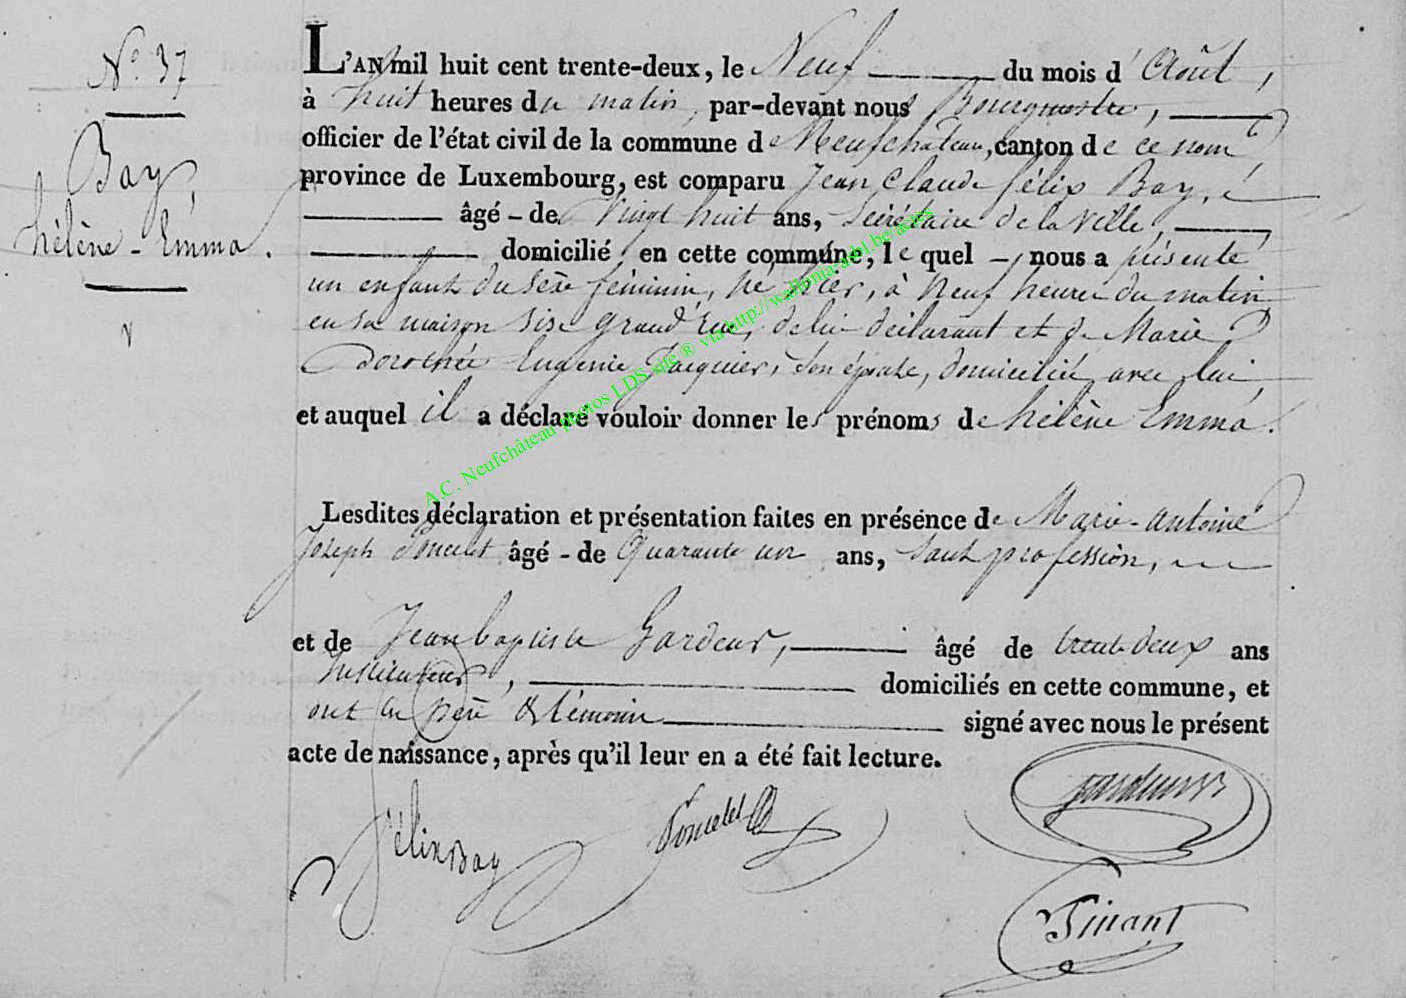 N° 37
Bay,
hélène - Emma.
L'AN mil huit cent trente-deux, le Neuf du mois d' Août,
à huit heures du matin, par-devant nous Bourgmestre,
officier de l'état civil de la commune de Neufchâteau, canton de ce nom,
province de Luxembourg, est comparu Jean Claude félix Bay,
âgé - de Vingt huit ans, Secrétaire de la Ville,
domicilié en cette commune, le quel - nous a présenté
un enfant du sexe féminin, né hier, à Neuf heures du matin
en sa maison sise grand'rue, de lui déclarant et de Marie
Dorothée Eugénie Jacquier, son épouse, domiciliée avec lui,
et auquel il a déclaré vouloir donner les prénoms de hélène Emma.
Lesdites déclaration et présentation faites en présence de Marie-Antoine
Joseph Poncelet âgé - de Quarante un ans, sans profession,
et de Jean baptiste Gardeur, âgé de trente deux ans
Instituteur, domiciliés en cette commune, et
ont les père & témoins signé avec nous le présent
acte de naissance, après qu'il leur en a été fait lecture.
félix Bay
Poncelet
Gardeur
Tinant
A.C. Neufchâteau photos LDS site ® via http://wallonia-asbl.be/actes